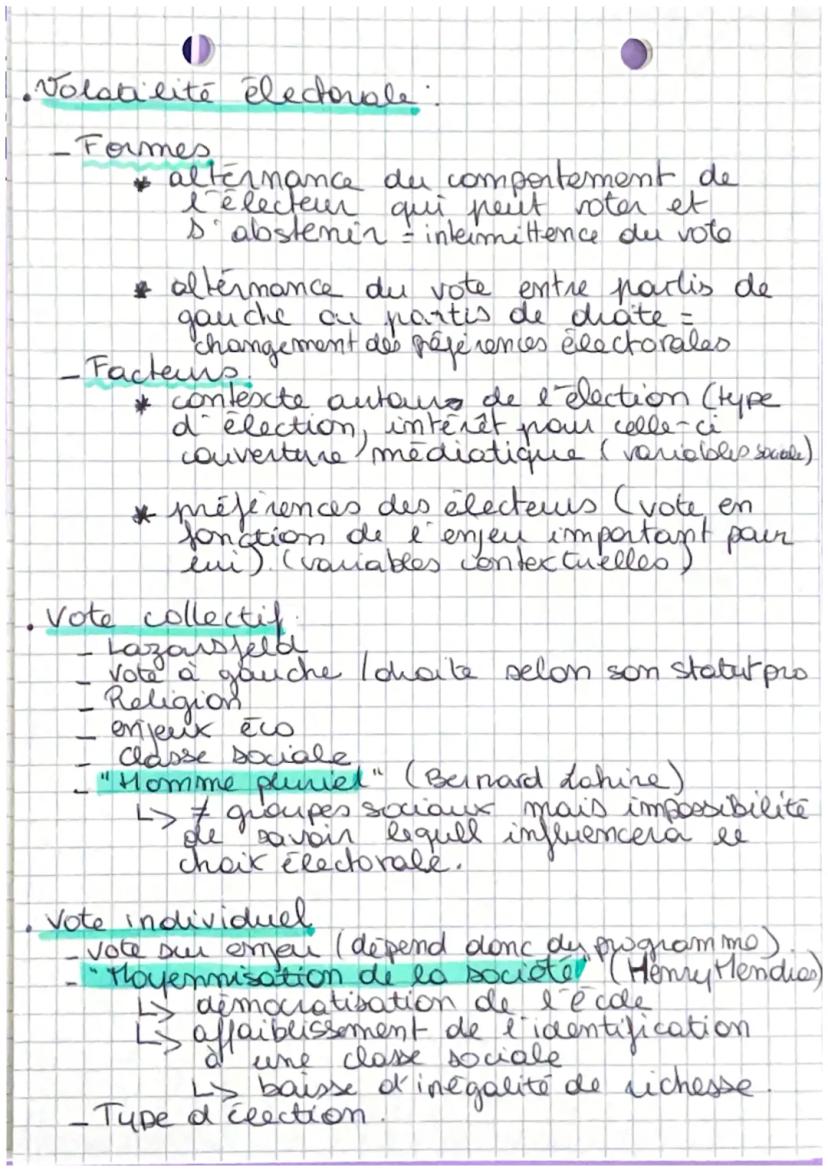 . Volatilité électorale :
- Formes
* alternance du comportement de
l'électeur qui peut voter et
s'abstenir = intermittence du vote
* alternance du vote entre partis de
gauche ou partis de droite =
changement des préférences électorales
- Facteurs.
* contexte autour de l'élection (type
d'élection, intérêt pour celle-ci
couverture médiatique (variables sociale)
* préférences des électeurs (vote en
fonction de l'enjeu important pour
lui). (variables contextuelles)
. Vote collectif.
- Lazarsfeld
- Vote à gauche / droite selon son statut pro
- Religion
- enjeux éco
- classe sociale
- "Homme pluriel" (Bernard Lahire)
↳ ≠ groupes sociaux mais impossibilité
de savoir lequell influencera le
choix électorale.
. Vote individuel
- vote sur enjeu (dépend donc du programme).
- "Moyennisation de la société" (Henry Mendras)
↳ démocratisation de l'école
↳ affaiblissement de l'identification
à une classe sociale
↳ baisse d'inégalité de richesse.
- Type d'élection.